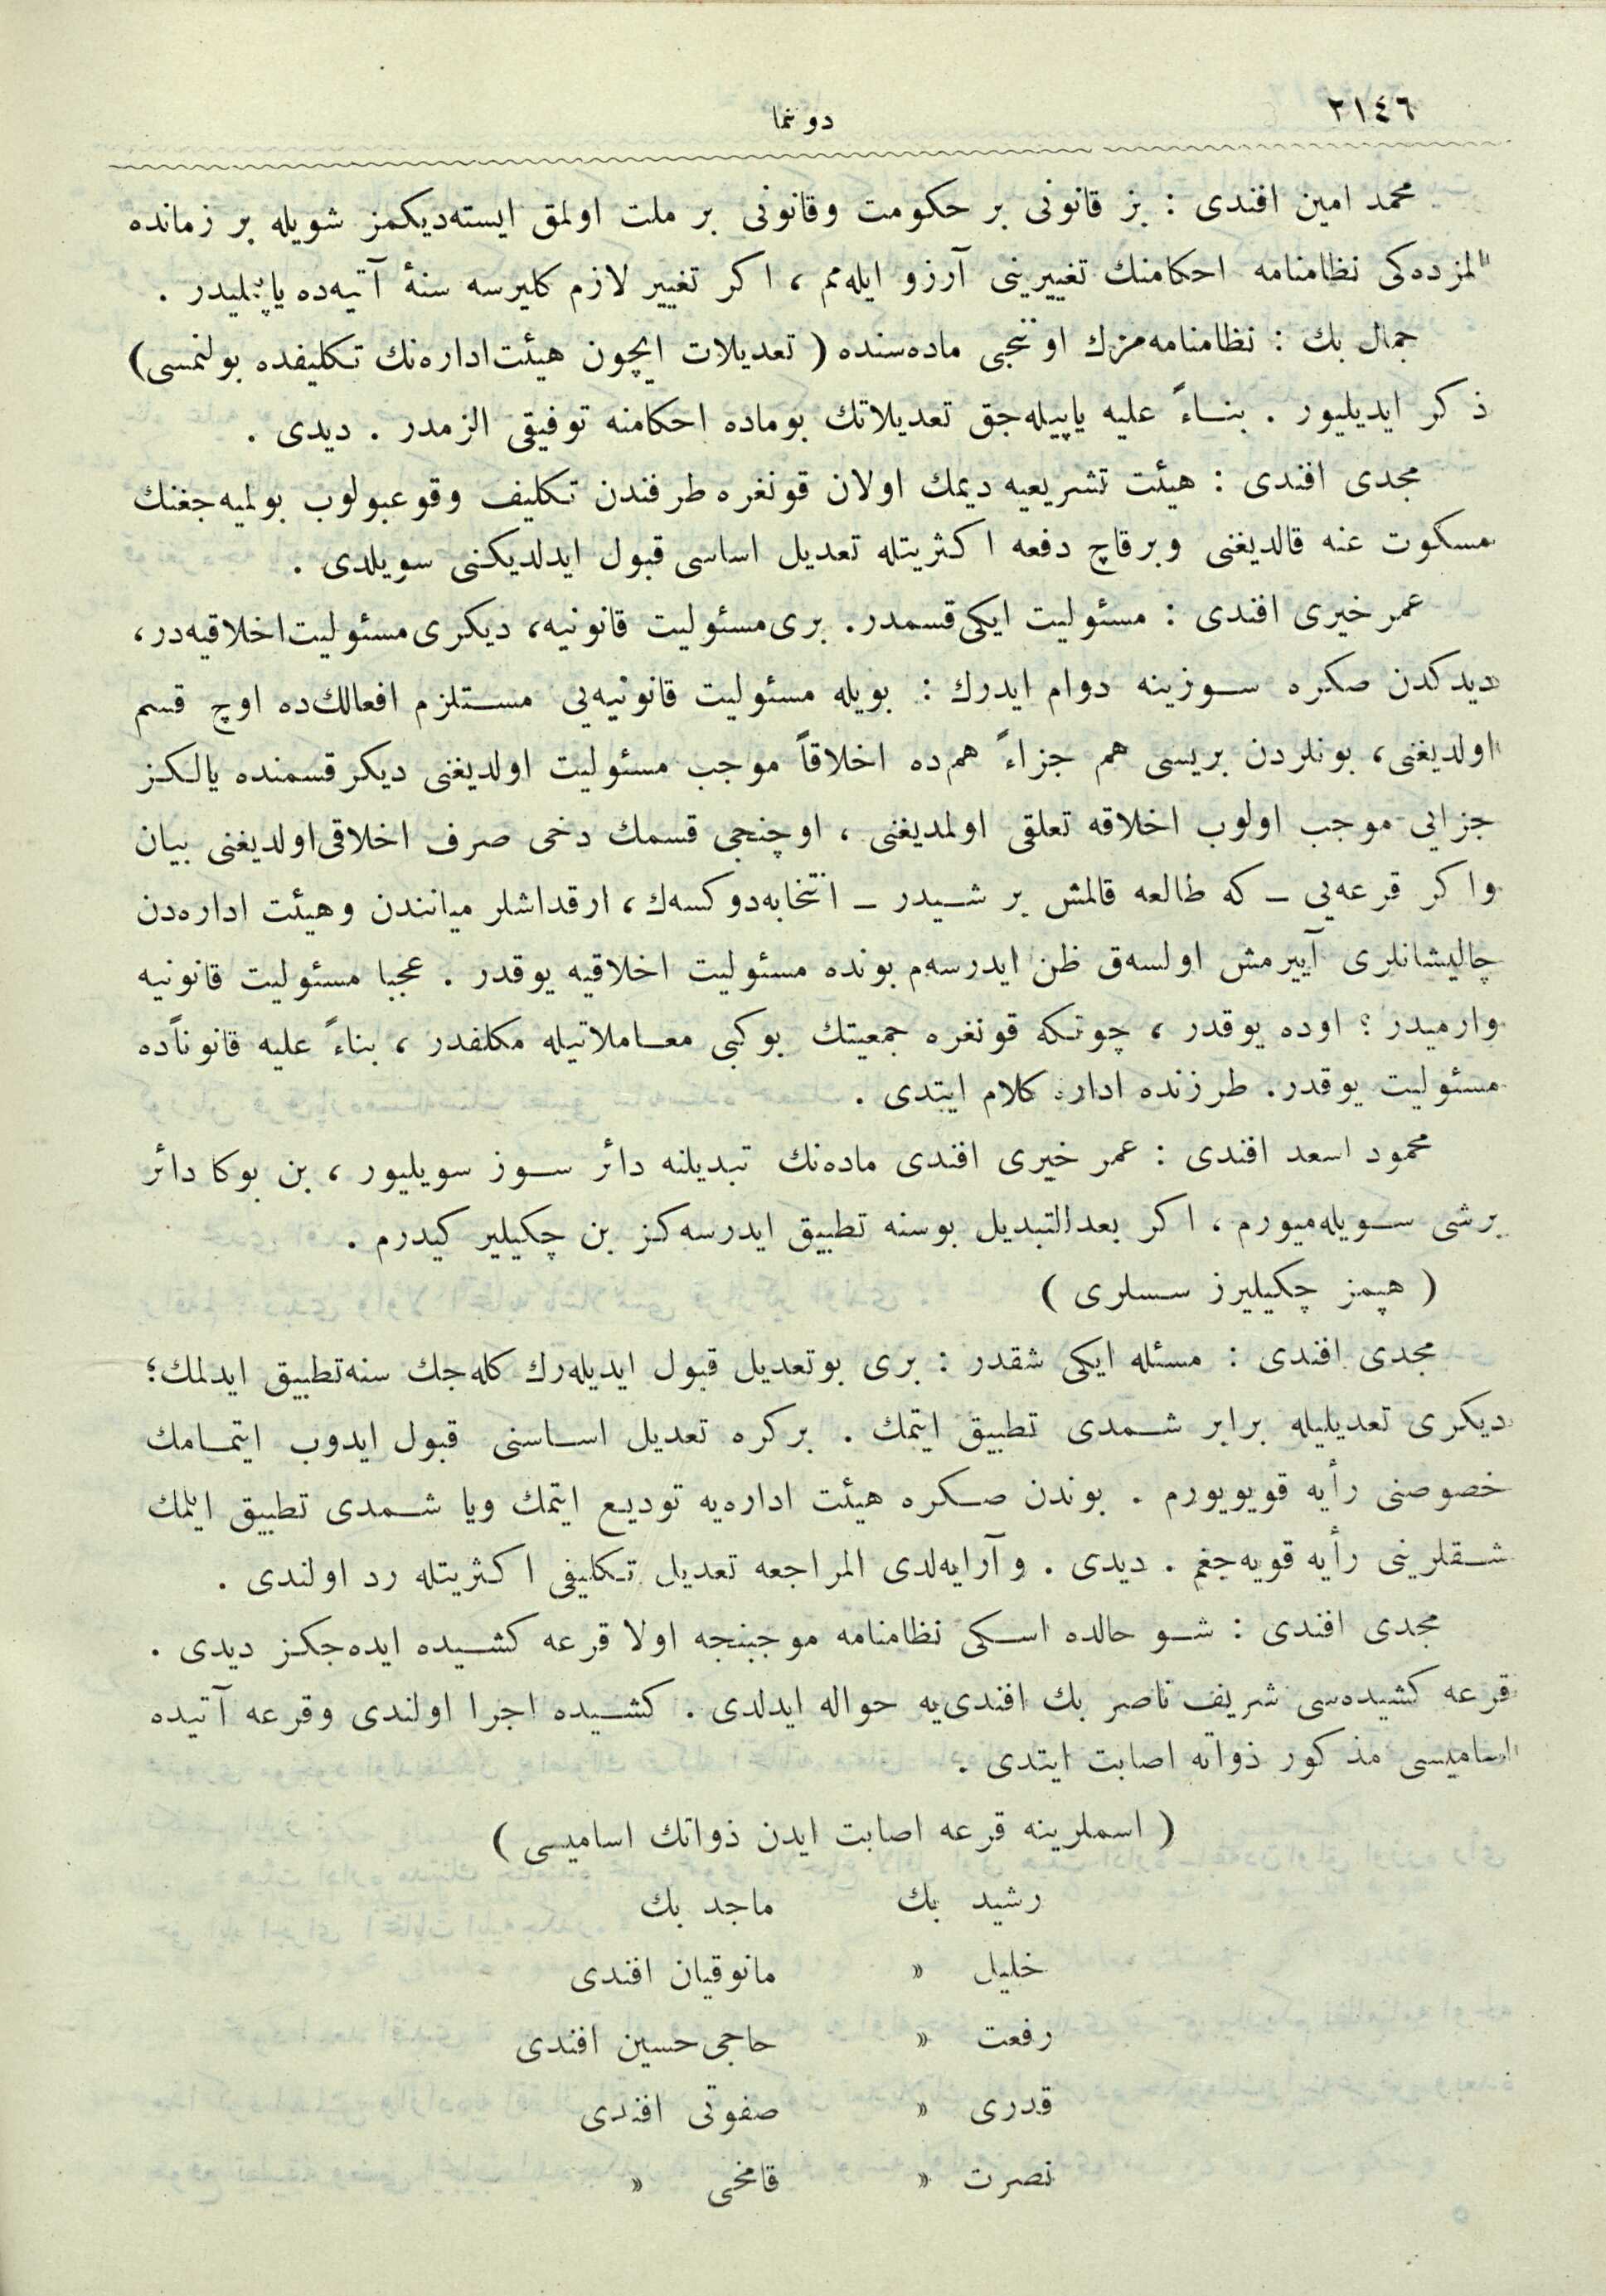 ٢١٤٦
دوننما
محمد امین افندی : بز قانونی بر حکومت وقانونی بر ملت اولمق ایسته‌دیکمز شویله بر زمانده
المزده‌کی نظامنامه احکامنك تغییرینی آرزو ایله‌مم ، اکر تغییر لازم کلیرسه سنهٔ آتیه‌ده یاپیلیدر .
جمال بك : نظامنامه‌مزك اوننجی ماده‌سنده ( تعدیلات ایچون هیئت اداره‌نك تکلیفده بولنمسی )
ذکر ایدیلیور . بناءً علیه یاپیله‌جق تعدیلاتك بوماده احکامنه توفیقی الزمدر . دیدی .
مجدی افندی : هیئت تشریعیه دیمك اولان قونغره طرفندن تکلیف وقوعبولوب بولمیه‌جغنك
مسکوت عنه قالدیغنی وبرقاچ دفعه اکثریتله تعدیل اساسی قبول ایدلدیکنی سویلدی .
عمر خیری افندی : مسئولیت ایکی قسمدر. بری مسئولیت قانونیه، دیکری مسئولیت اخلاقیه‌در،
دیدکدن صکره سوزینه دوام ایدرك : بویله مسئولیت قانونیه‌یی مستلزم افعالك‌ده اوچ قسم
اولدیغنی، بونلردن بریسی هم جزاءً هم‌ده اخلاقاً موجب مسئولیت اولدیغنی دیکر قسمنده یالکز
جزایی موجب اولوب اخلاقه تعلقی اولمدیغنی ، اوچنجی قسمك دخی صرف اخلاقی اولدیغنی بیان
واکر قرعه‌یی ـ که طالعه قالمش بر شیدر ـ انتخابه دوکسه‌ك، ارقداشلر میانندن وهیئت اداره‌دن
چالیشانلری آییرمش اولسه‌ق ظن ایدرسه‌م بونده مسئولیت اخلاقیه یوقدر . عجبا مسئولیت قانونیه
وارمیدر ؟ اوده یوقدر ، چونکه قونغره جمعیتك بوکبی معاملاتیله مکلفدر ، بناءً علیه قانوناً‌ده
مسئولیت یوقدر. طرزنده اداره کلام ایتدی .
محمود اسعد افندی : عمر خیری افندی ماده‌نك تبدیلنه دائر سوز سویلیور ، بن بوکا دائر
برشی سویله‌میورم ، اکر بعدالتبدیل بوسنه تطبیق ایدرسه‌کز بن چکیلیر کیدرم .
( هپمز چکیلیرز سسلری )
مجدی افندی : مسئله ایکی شقدر : بری بوتعدیل قبول ایدیله‌رك کله‌جك سنه تطبیق ایدلمك؛
دیکری تعدیلیله برابر شمدی تطبیق ایتمك . برکره تعدیل اساسنی قبول ایدوب ایتمامك
خصوصنی رأیه قویویورم . بوندن صکره هیئت اداره‌یه تودیع ایتمك ویا شمدی تطبیق ایتمك
شقلرینی رأیه قویه‌جغم . دیدی . وآرایه‌لدی المراجعه تعدیل تکلیفی اکثریتله رد اولندی .
مجدی افندی : شو حالده اسکی نظامنامه موجبنجه اولا قرعه کشیده ایده‌جکز دیدی .
قرعه کشیده‌سی شریف ناصر بك افندی‌یه حواله ایدلدی . کشیده اجرا اولندی وقرعه آتیده
اسامیسی مذکور ذواته اصابت ایتدی .
( اسملرینه قرعه اصابت ایدن ذواتك اسامیسی )
رشید بك ماجد بك
خلیل » مانوقیان افندی
رفعت » حاجی حسین افندی
قدری » صفوتی افندی
نصرت » قامخی »